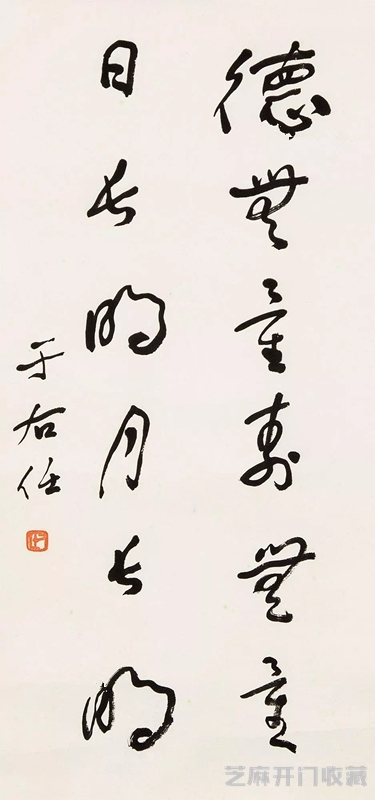 德無量壽無量
日長明月長明
于右任
芝麻开门收藏